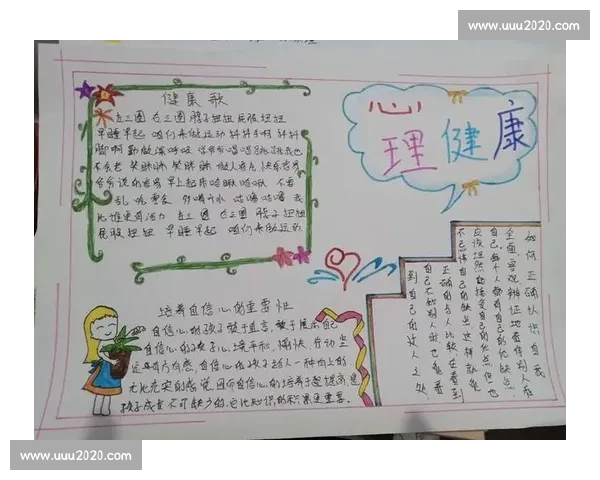 www.uuu2020.com
心理健康
健康歌
左三圈 右三圈 脖子扭扭 屁股扭扭
早睡早起 咱们来做运动 抖抖手啊 抖抖
脚啊 勤做深呼吸 学爷爷唱唱跳跳我也
不会老 笑眯眯 笑眯眯 做人客气 快乐容易
爷爷说的容易 早上起床哈啾哈啾 不要
乱吃零食 多喝开水 咕噜咕噜 我
比谁更有活力 左三圈 右三圈 脖子扭扭
屁股扭扭 早睡早起 咱们来做运动
如何正确认识自我
全面客观辨证地看待别人看
自己,每个人都有自己的优缺点
应该坦然勇敢接受自己的优点但也
不忘记自己的缺点 这样就能
正确的与人比较,在看到
自己不如别人时也能看
到自己的过人之处
培养自信心的重要性
自信心的孩子敢于直言,敢于展示自己
自信心的孩子开心,镇平和,愉快,行动坚
定具有方向感,自信心的孩子给人一种向上的
无比充实的感觉,因而自信心的培养于提高,是
孩子成长不可缺少的,它比知识的积累更重要。
www.uuu2020.com
www.uuu2020.com